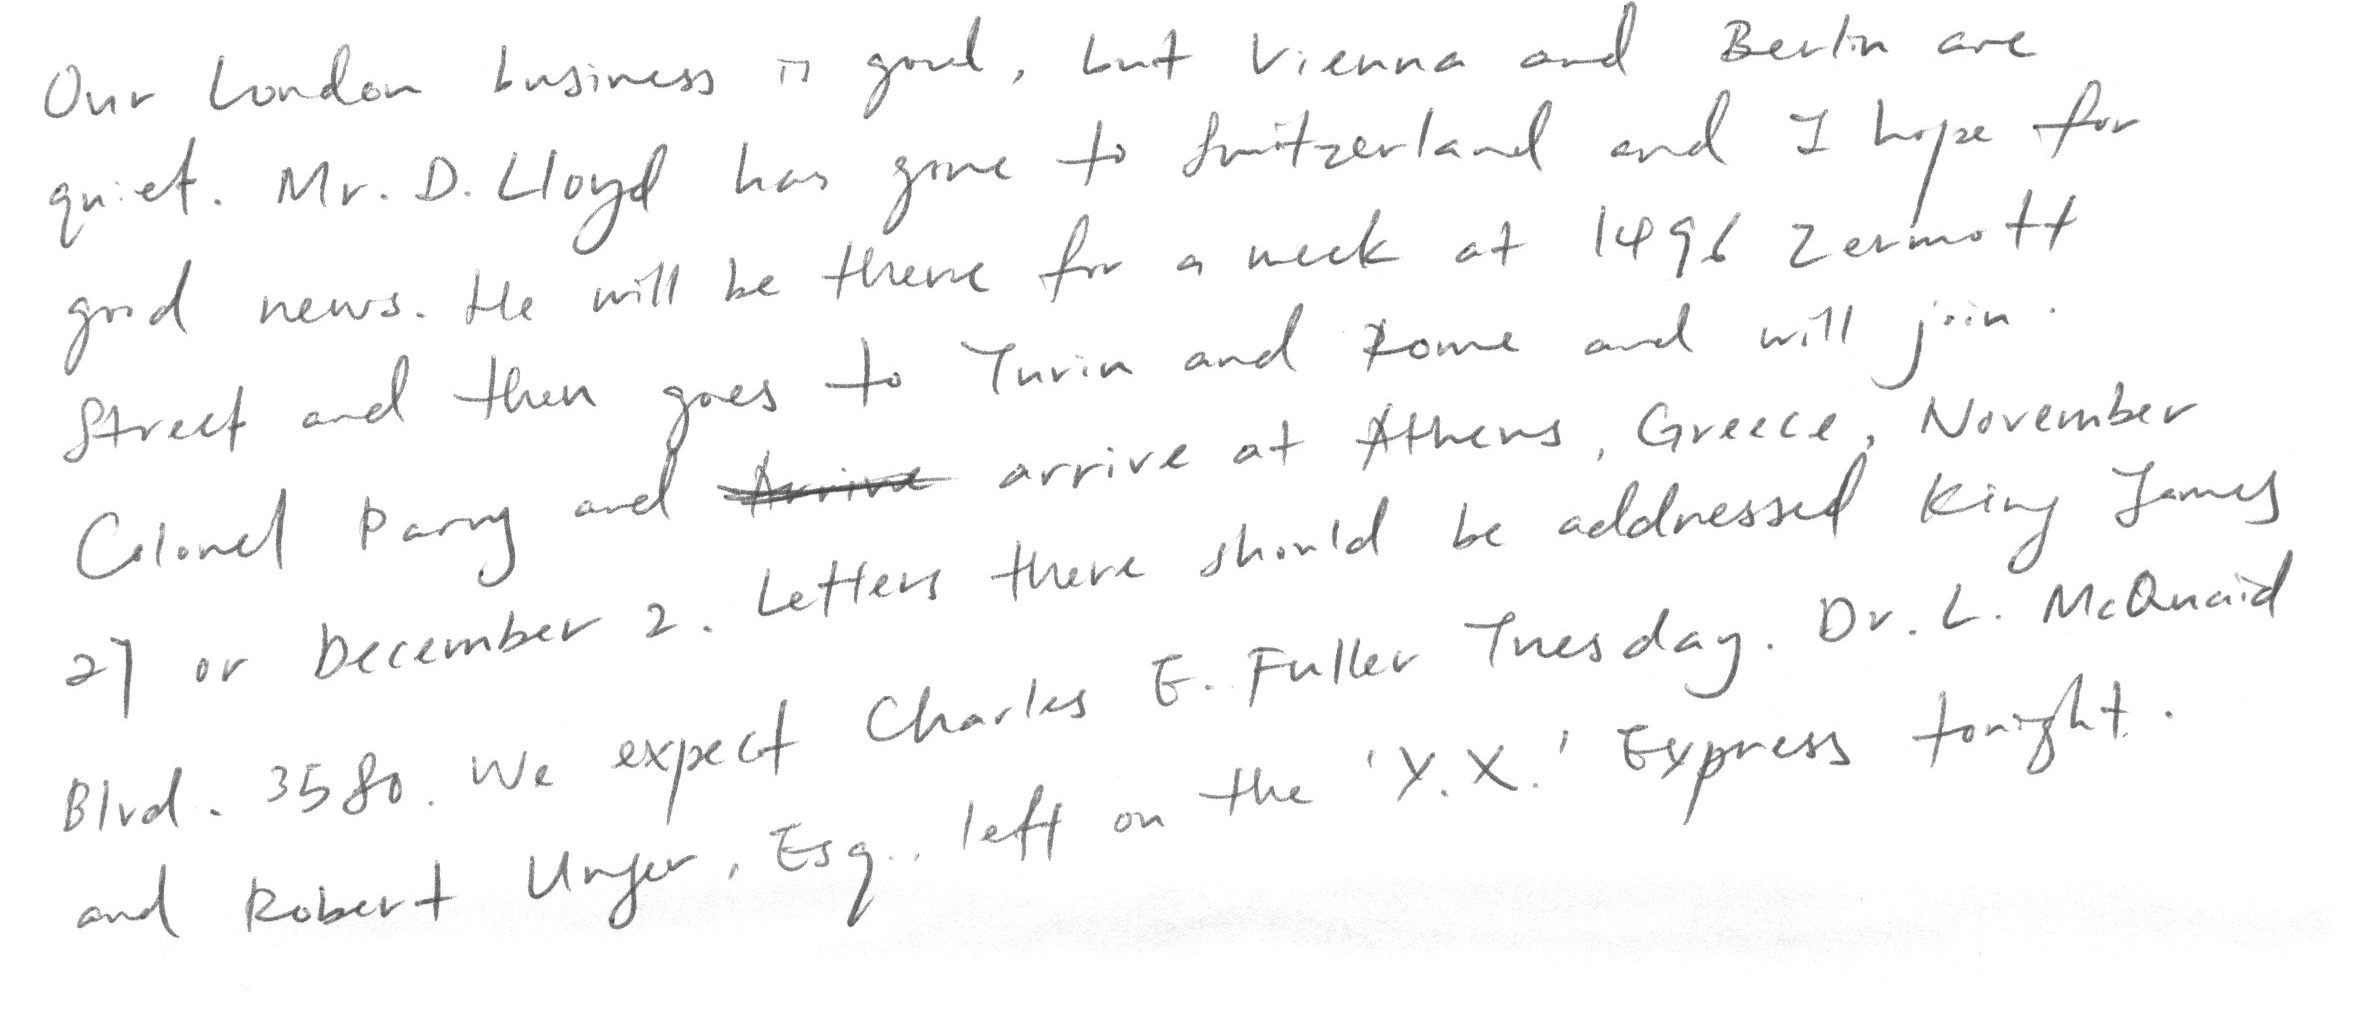 Our London business is good, but Vienna and Berlin are
quiet. Mr. D. Lloyd has gone to Switzerland and I hope for
good news. He will be there for a week at 1496 Zermott
Street and then goes to Turin and Rome and will join
Colonel Parry and arrive at Athens, Greece, November
27 or December 2. Letters there should be addressed King James
Blvd. 3580. We expect Charles E. Fuller Tuesday. Dr. L. McQuaid
and Robert Unger, Esq., left on the 'Y.X.' Express tonight.